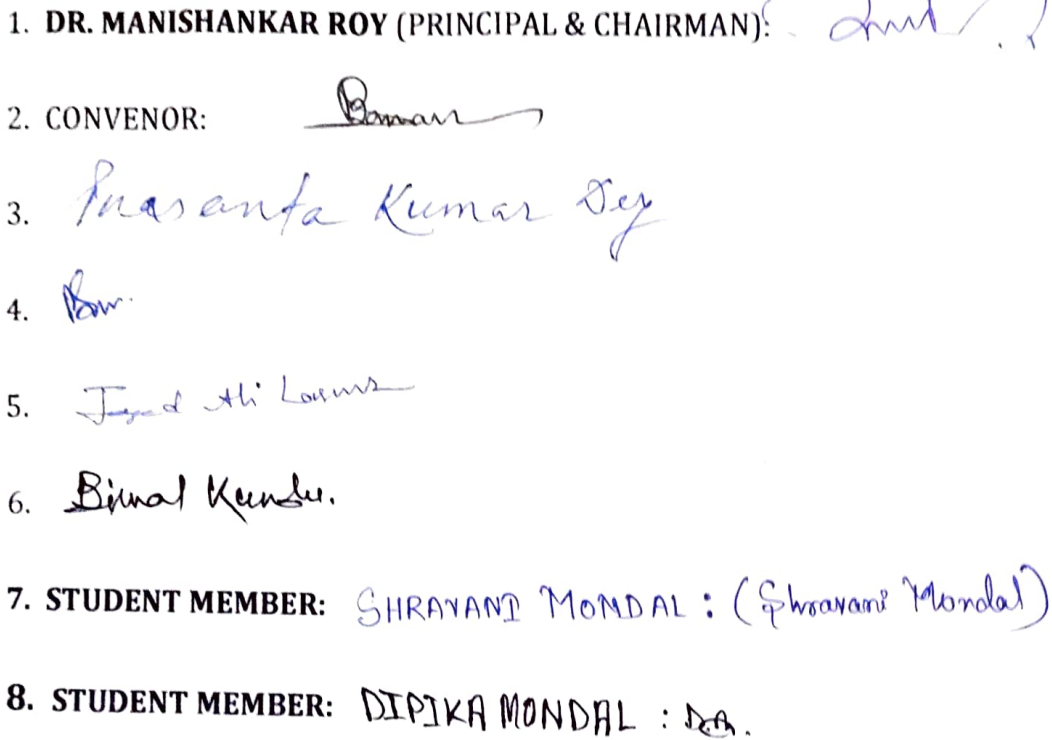 1. DR. MANISHANKAR ROY (PRINCIPAL & CHAIRMAN):
2. CONVENOR: Barman
3. Prasanta Kumar Dey
4.
5. Ali
6. Bimal Kundu.
7. STUDENT MEMBER: SHRAVANI MONDAL : (Shravani Mondal)
8. STUDENT MEMBER: DIPIKA MONDAL :